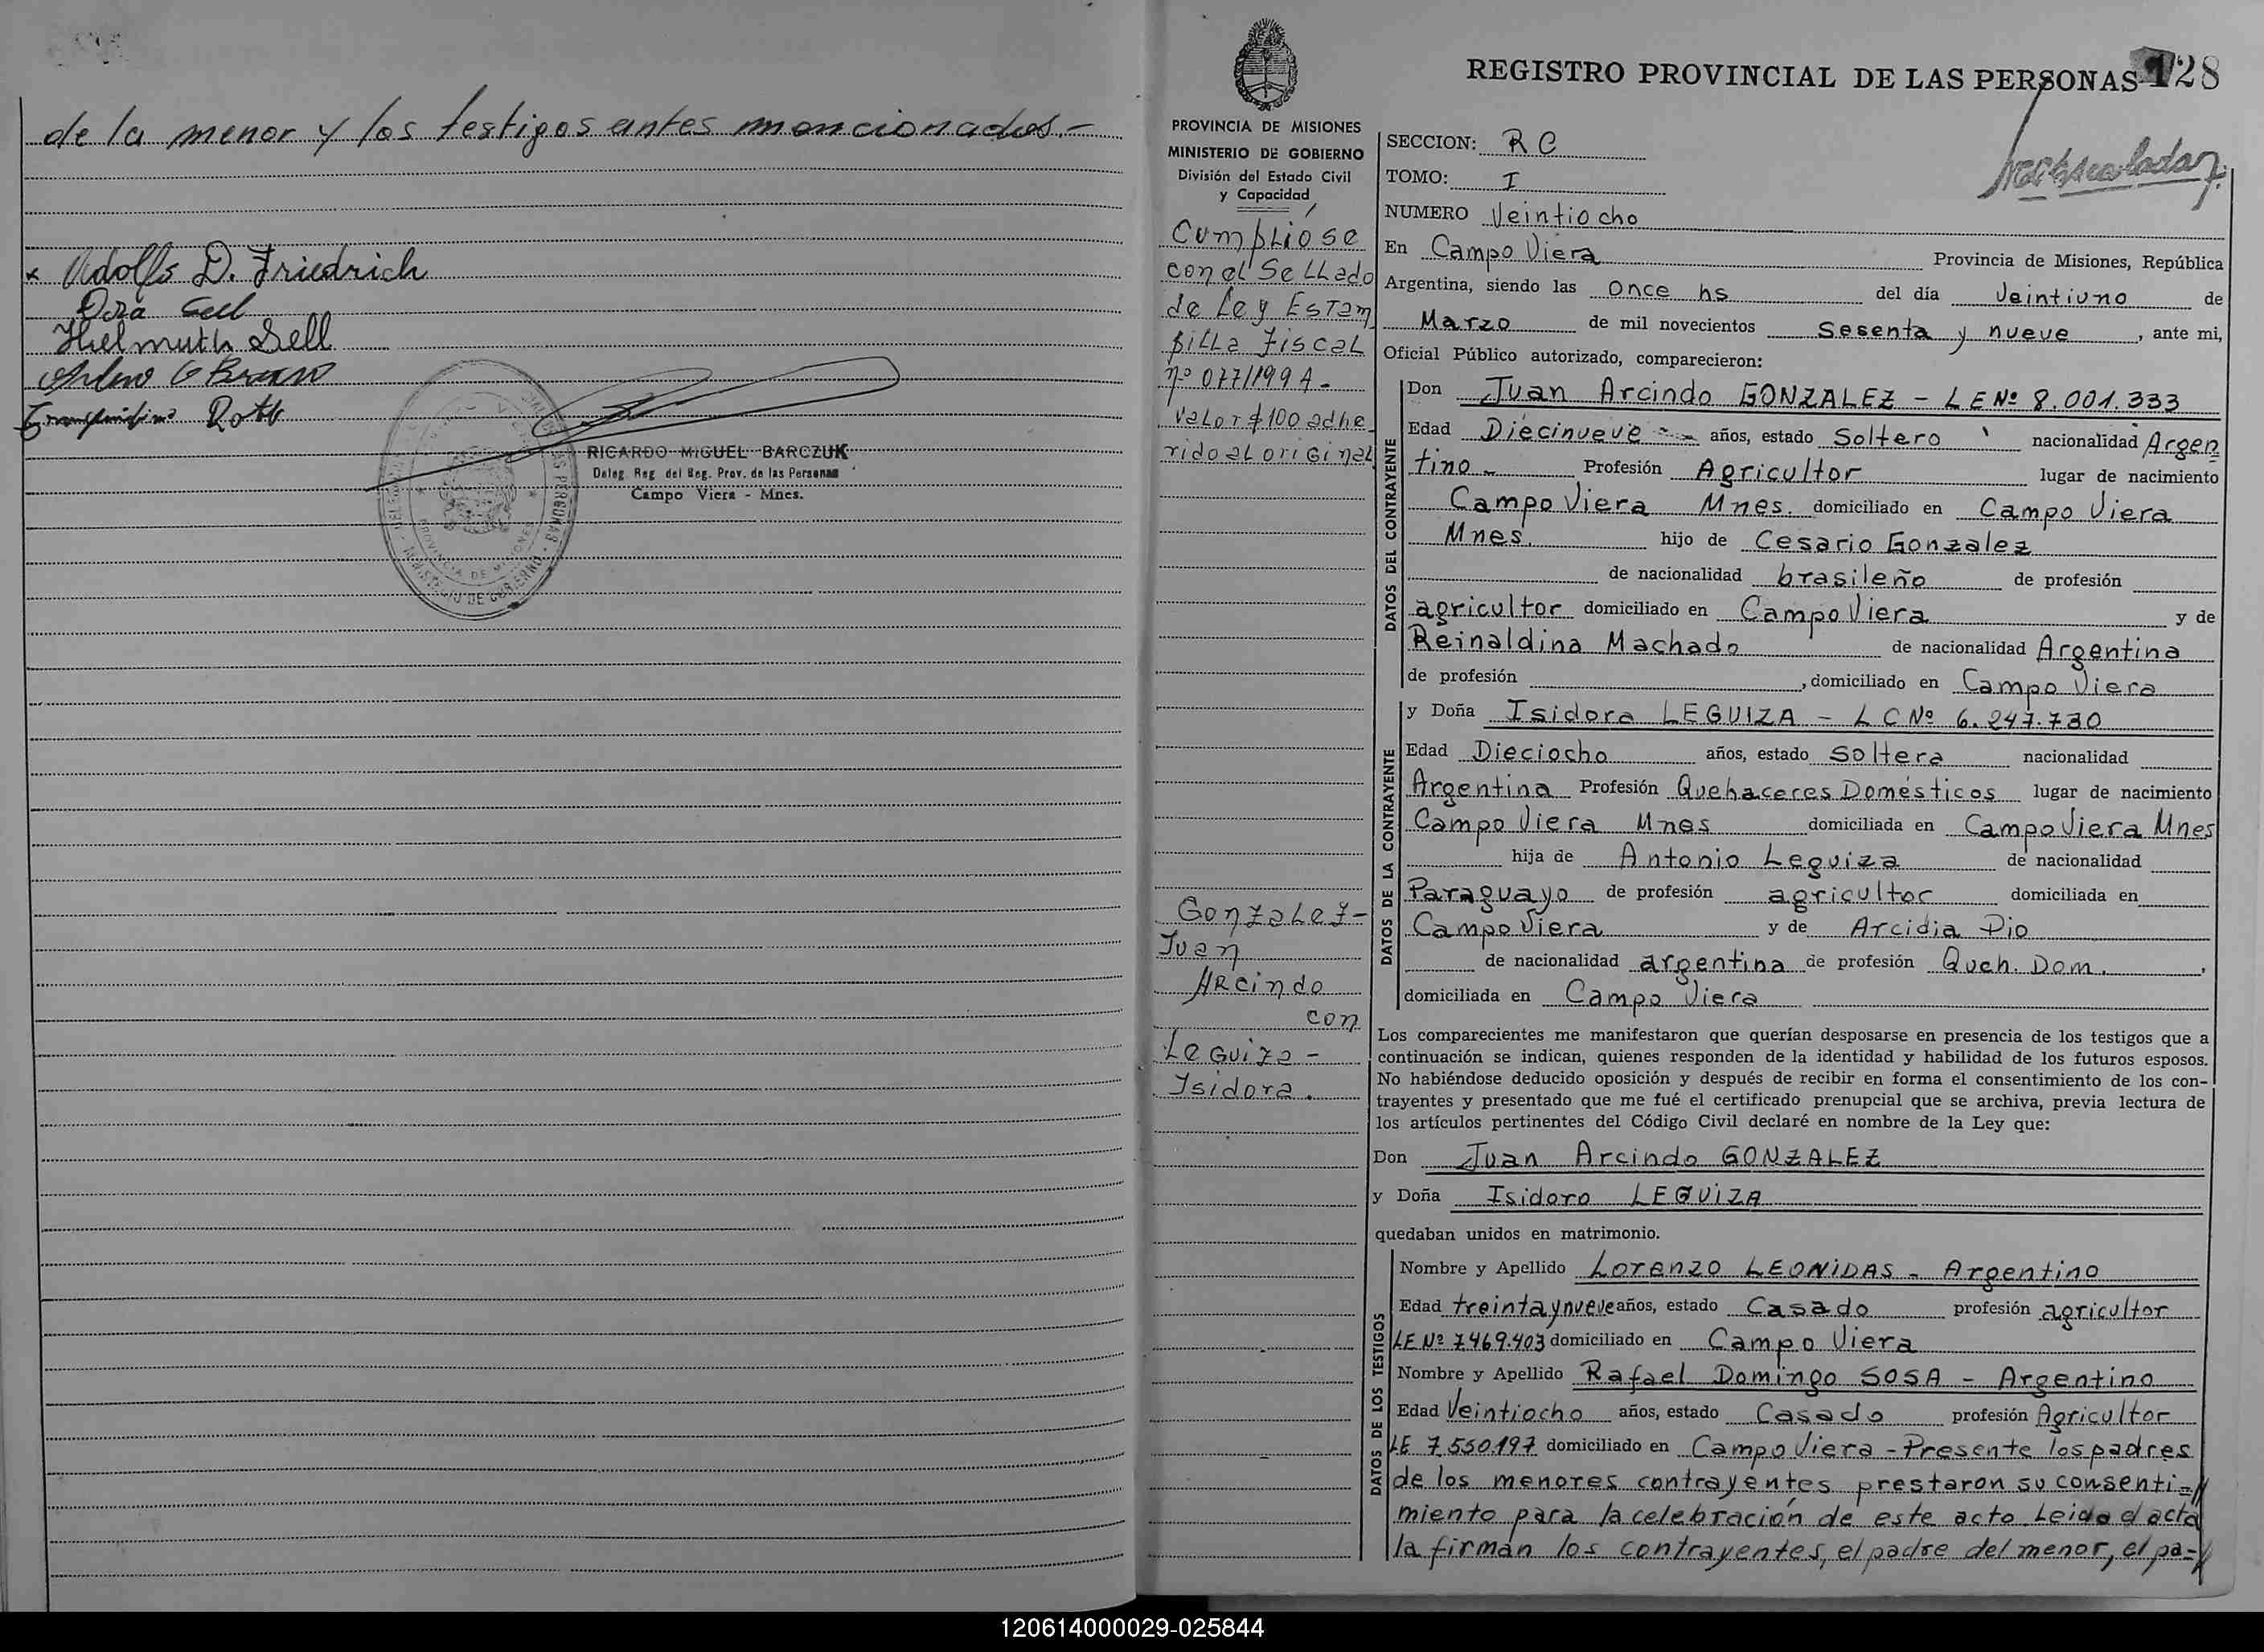 de la menor y los testigos antes mencionados.-
x Adolfo D. Friedrich
Dora Sell
Helmuth Sell
Roth
RICARDO MIGUEL BARCZUK
Deleg. Reg. del Reg. Prov. de las Personas
Campo Viera - Mnes.
PROVINCIA DE MISIONES
MINISTERIO DE GOBIERNO
División del Estado Civil
y Capacidad
Cumplióse
con el Sellado
de Ley Estam
pilla Fiscal
nº 077/199 A-
Valor $100 adhe
rido al original
Gonzalez-
Juan
Arcindo
con
Leguiza-
Isidora.
REGISTRO PROVINCIAL DE LAS PERSONAS 128
SECCION: R C
TOMO: I
NUMERO Veintiocho
En Campo Viera Provincia de Misiones, República
Argentina, siendo las once hs del día Veintiuno de
Marzo de mil novecientos sesenta y nueve, ante mi,
Oficial Público autorizado, comparecieron:
DATOS DEL CONTRAYENTE
Don Juan Arcindo GONZALEZ - LE Nº 8.001.333
Edad Diecinueve años, estado Soltero nacionalidad Argen
tino Profesión Agricultor lugar de nacimiento
Campo Viera Mnes. domiciliado en Campo Viera
Mnes. hijo de Cesario Gonzalez
de nacionalidad brasileño de profesión
agricultor domiciliado en Campo Viera y de
Reinaldina Machado de nacionalidad Argentina
de profesión , domiciliado en Campo Viera
DATOS DE LA CONTRAYENTE
y Doña Isidora LEGUIZA - L C Nº 6.247.730
Edad Dieciocho años, estado Soltera nacionalidad
Argentina Profesión Quehaceres Domésticos lugar de nacimiento
Campo Viera Mnes domiciliada en Campo Viera Mnes
hija de Antonio Leguiza de nacionalidad
Paraguayo de profesión agricultor domiciliada en
Campo Viera y de Arcidia Pio
de nacionalidad argentina de profesión Queh. Dom.,
domiciliada en Campo Viera
Los comparecientes me manifestaron que querían desposarse en presencia de los testigos que a
continuación se indican, quienes responden de la identidad y habilidad de los futuros esposos.
No habiéndose deducido oposición y después de recibir en forma el consentimiento de los con-
trayentes y presentado que me fué el certificado prenupcial que se archiva, previa lectura de
los artículos pertinentes del Código Civil declaré en nombre de la Ley que:
Don Juan Arcindo GONZALEZ
y Doña Isidora LEGUIZA
quedaban unidos en matrimonio.
DATOS DE LOS TESTIGOS
Nombre y Apellido Lorenzo LEONIDAS - Argentino
Edad treinta y nueve años, estado Casado profesión agricultor
LE Nº 7469.403 domiciliado en Campo Viera
Nombre y Apellido Rafael Domingo SOSA - Argentino
Edad Veintiocho años, estado Casado profesión Agricultor
LE 7550197 domiciliado en Campo Viera - Presente los padres
de los menores contrayentes prestaron su consenti=//
miento para la celebración de este acto. Leida el acta
la firman los contrayentes, el padre del menor, el pa=//
120614000029-025844